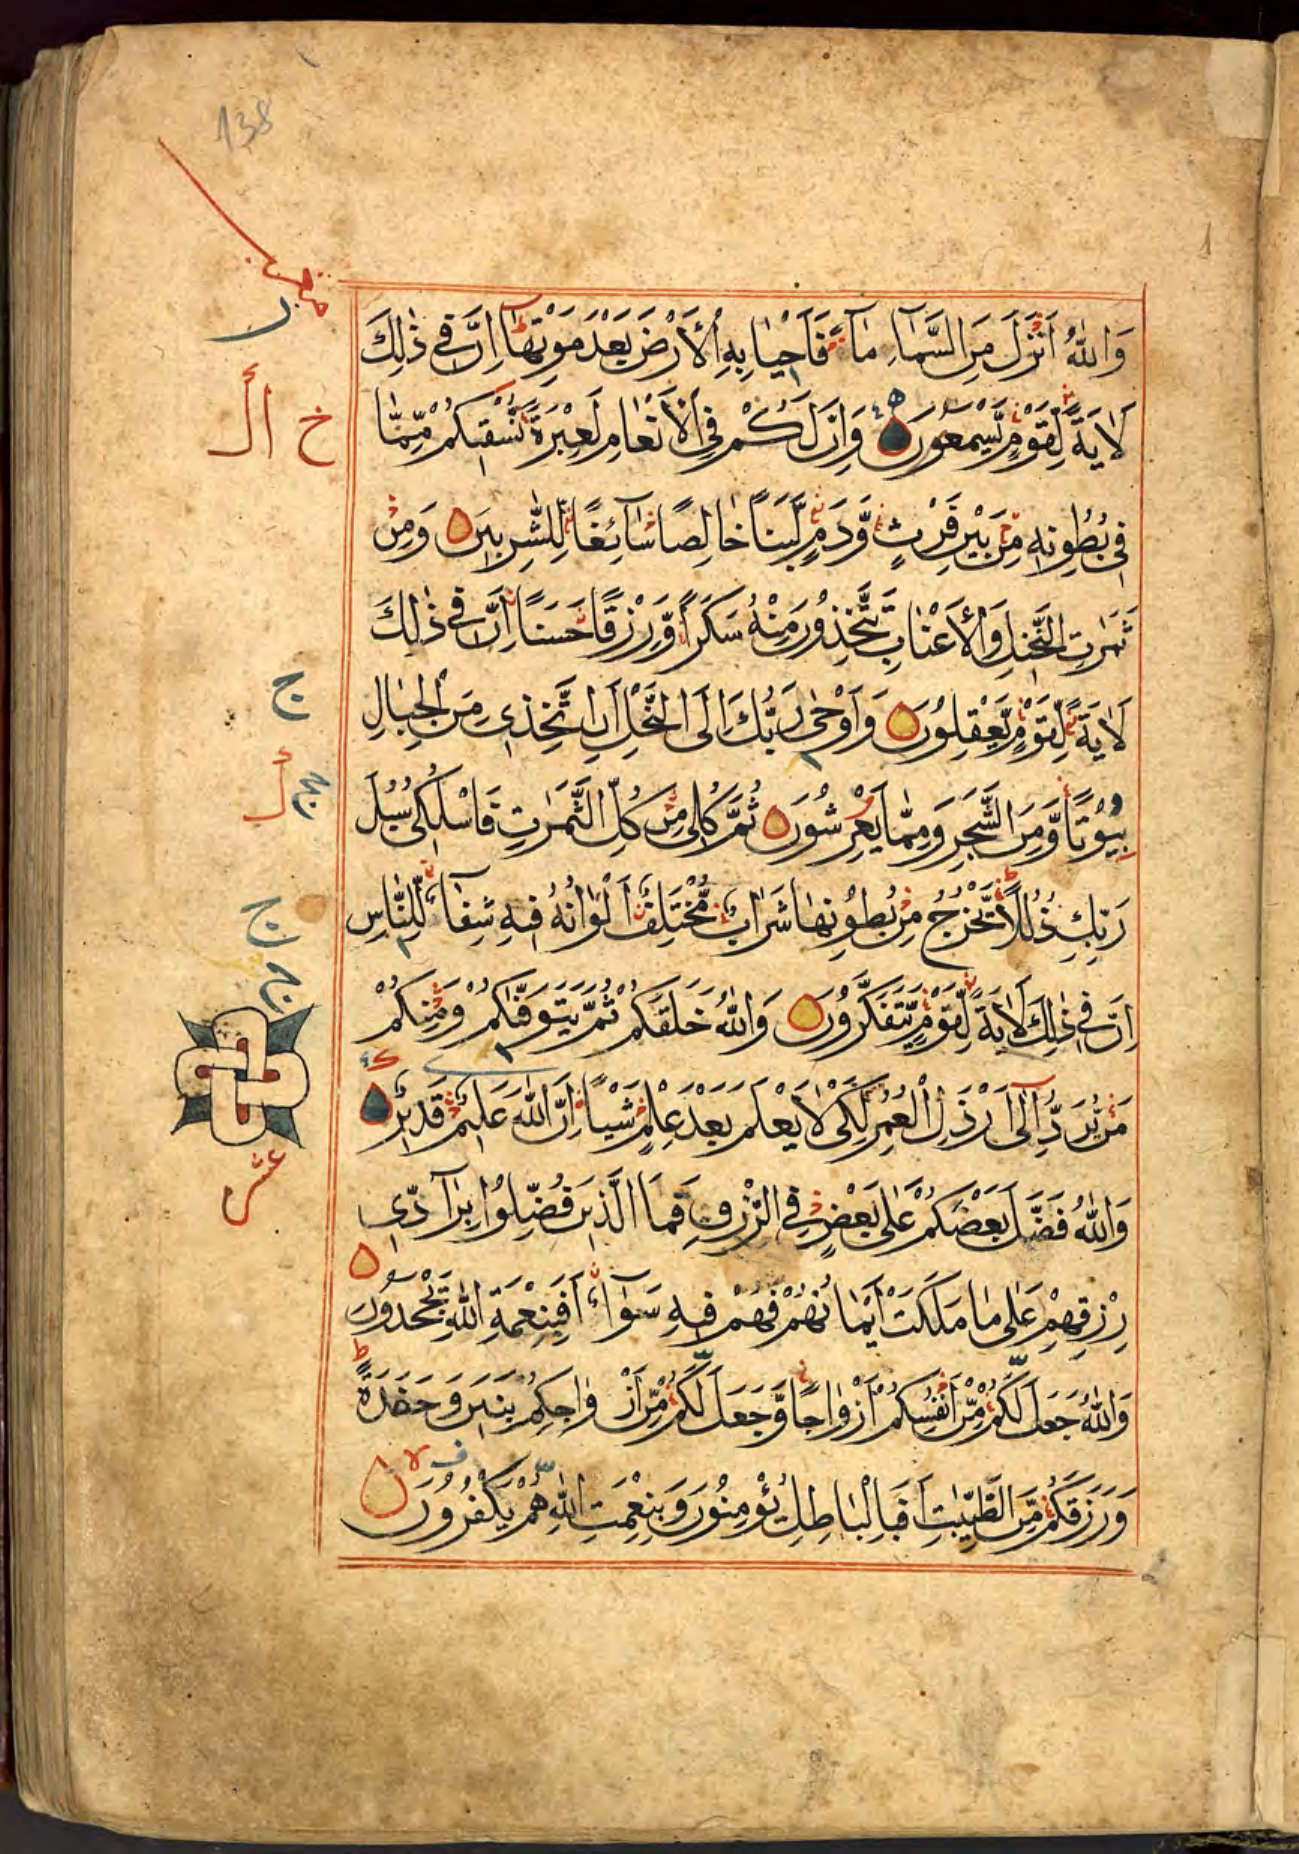 138
وَاللّٰهُ اَنْزَلَ مِنَ السَّمَآءِ مَآءً فَاَحْيَا بِهِ الْاَرْضَ بَعْدَ مَوْتِهَا اِنَّ فِى ذٰلِكَ
لَاٰيَةً لِقَوْمٍ يَسْمَعُونَ وَاِنَّ لَكُمْ فِى الْاَنْعَامِ لَعِبْرَةً نُسْقِيكُمْ مِمَّا
فِى بُطُونِهِ مِنْ بَيْنِ فَرْثٍ وَدَمٍ لَبَنًا خَالِصًا سَآئِغًا لِلشّٰرِبِينَ وَمِنْ
ثَمَرٰتِ النَّخِيلِ وَالْاَعْنَابِ تَتَّخِذُونَ مِنْهُ سَكَرًا وَرِزْقًا حَسَنًا اِنَّ فِى ذٰلِكَ
لَاٰيَةً لِقَوْمٍ يَعْقِلُونَ وَاَوْحٰى رَبُّكَ اِلَى النَّحْلِ اَنِ اتَّخِذِى مِنَ الْجِبَالِ
بُيُوتًا وَمِنَ الشَّجَرِ وَمِمَّا يَعْرِشُونَ ثُمَّ كُلِى مِنْ كُلِّ الثَّمَرٰتِ فَاسْلُكِى سُبُلَ
رَبِّكِ ذُلُلًا يَخْرُجُ مِنْ بُطُونِهَا شَرَابٌ مُخْتَلِفٌ اَلْوَانُهُ فِيهِ شِفَآءٌ لِلنَّاسِ
اِنَّ فِى ذٰلِكَ لَاٰيَةً لِقَوْمٍ يَتَفَكَّرُونَ وَاللّٰهُ خَلَقَكُمْ ثُمَّ يَتَوَفّٰكُمْ وَمِنْكُمْ
مَنْ يُرَدُّ اِلٰى اَرْذَلِ الْعُمُرِ لِكَىْ لَا يَعْلَمَ بَعْدَ عِلْمٍ شَيْئًا اِنَّ اللّٰهَ عَلِيمٌ قَدِيرٌ
عشر
وَاللّٰهُ فَضَّلَ بَعْضَكُمْ عَلٰى بَعْضٍ فِى الرِّزْقِ فَمَا الَّذِينَ فُضِّلُوا بِرَآدِّى
رِزْقِهِمْ عَلٰى مَا مَلَكَتْ اَيْمَانُهُمْ فَهُمْ فِيهِ سَوَآءٌ اَفَبِنِعْمَةِ اللّٰهِ يَجْحَدُونَ
وَاللّٰهُ جَعَلَ لَكُمْ مِنْ اَنْفُسِكُمْ اَزْوَاجًا وَجَعَلَ لَكُمْ مِنْ اَزْوَاجِكُمْ بَنِينَ وَحَفَدَةً
وَرَزَقَكُمْ مِنَ الطَّيِّبٰتِ اَفَبِالْبَاطِلِ يُؤْمِنُونَ وَبِنِعْمَتِ اللّٰهِ هُمْ يَكْفُرُونَ